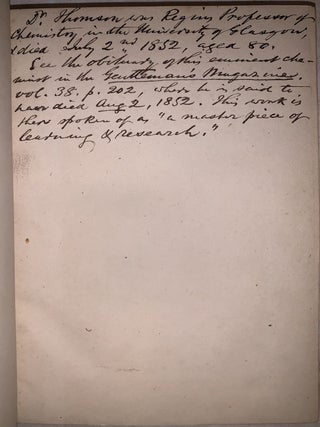 Dr. Thomson was Regius Professor of
Chemistry in the University of Glasgow,
& died July 2nd, 1852, aged 80.
See the obituary of this eminent che-
mist in the Gentleman's Magazine,
vol. 38. p. 202, where he is said to
have died Aug 2, 1852. This work is
there spoken of as "a master piece of
learning & research."